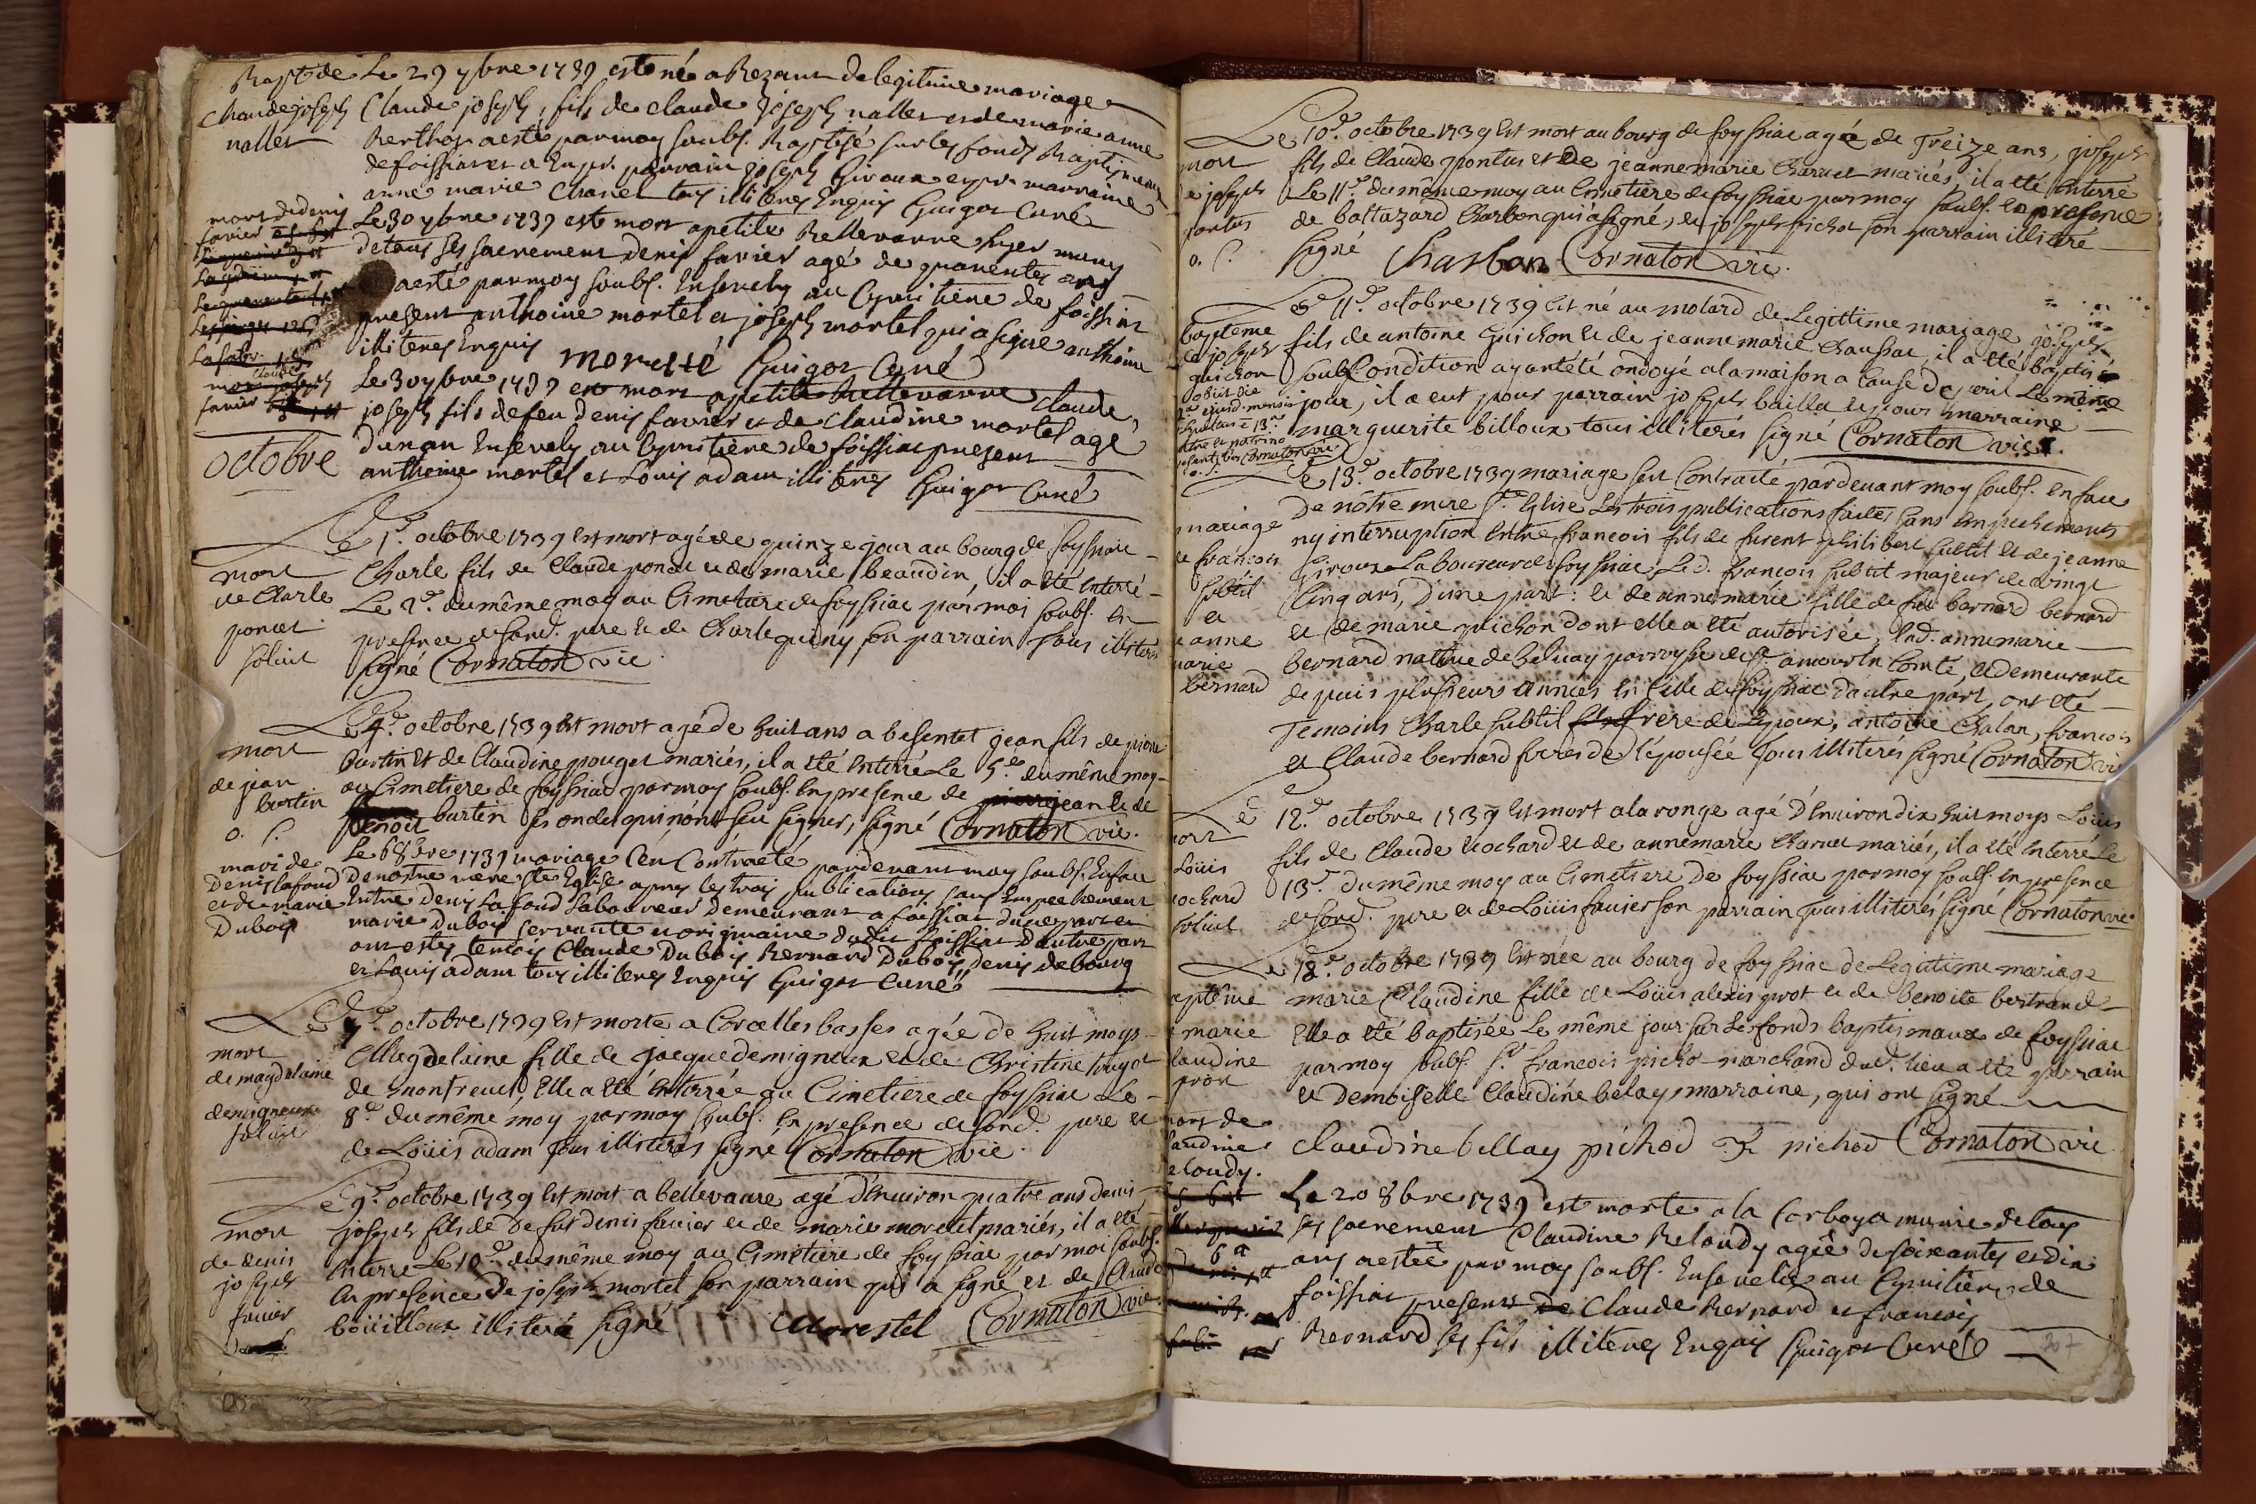 Bapt de
Claude joseph
nallet
Le 29 7bre 1739 est né a Rezant de legitime mariage
Claude joseph, fils de claude joseph nallet et de marie anne
Berthos a esté par moy soubs. Baptisé sur les fonds Baptismaux
de foissiat et a eu pr. parrain joseph Giroux et pr. marraine
anne marie Chanel tous illiteres Enquis Guigot Curé
mort de denis
favier
Le 30 7bre 1739 est mort a petite Bellevavre hyer muny
de tous ses sacrements denis favier agé de quarentes ans
a esté par moy soubs. Ensevely au Cymitiere de foissiat
present anthoine mortel et joseph mortel qui a signé anthoine
illiteres Enquis morette Guigot Curé
mort claude joseph
favier
Le 30 7bre 1739 est mort a petite Bellevavre Claude
joseph fils de feu denis favier et de claudine mortel agé
d'un an Ensevely au Cymitiere de foissiat present
anthoine mortel et Louis adam illiteres Guigot Curé
octobre
mort
de Charle
poncet
soluit
Le 1r. octobre 1739 Est mort agé de quinze jour au bourg de foyssiac
Charle fils de Claude poncet et de marie beaudin, il a été Enterré
Le 2e. du même moy au Cimetiere de foyssiac par moi soubs. En
presence de sond. pere et de Charle guiny son parrain tous illiterés
signé Cornaton vic.
mort
de jean
burtin
o. s.
Le 4e. octobre 1739 Est mort agé de huit ans a besentet jean fils de pierre
burtin Et de Claudine pouget mariés, il a été Enterré Le 5e. du même moy
au Cimetiere de foyssiac par moy soubs. En presence de jean et de
benoit burtin ses oncles qui n'ont sçu signer, signé Cornaton vic.
mari. de
denis lafond
et de marie
Dubois
Le 6 8bre 1739 mariage a eu Contracté pardevant moy soubs. En face
De nostre mere ste Eglise apres les trois publications sans Empechement
Entre denis Lafond Laboureur demeurant a foissiat d'une part et
marie Dubois servante et originaire dudit foissiat d'autre part
ont estés temois Claude Dubois Bernard Dubois, denis debourg
et Louis adam tous illiteres Enquis Guigot Curé
mort
de magdelaine
demigneux
soluit
Le 7e. octobre 1739 Est morte a Corcelles basses agée de huit moys
Magdelaine fille de jacque demigneux et de Christine pugot
de monfreud, Elle a été Enterrée au Cimetiere de foyssiac Le
8e. du même moy par moy soubs. En presence de sond. pere et
de Loüis adam tous illiterés signé Cornaton vic.
mort
de denis
joseph
favier
Le 9e. octobre 1739 Est mort a bellevavre agé d'Environ quatre ans denis
joseph fils de feu denis favier et de marie mortel mariés, il a été
Enterré Le 10e. du même moy au Cimetiere de foyssiac par moi soubs.
En presence de joseph mortel son parrain qui a signé et de Claude
boüilloux illiteré signé Morestel Cornaton vic.
mort
de joseph
pontus
o. s.
Le 10e. octobre 1739 Est mort au bourg de foyssiac agé de Treize ans, joseph
fils de Claude pontus et de jeanne marie Charnet mariés, il a été Enterré
Le 11e. du même moy au Cimetiere de foyssiac par moy soubs. En presence
de baltazard Charbon qui a signé, et joseph pichot son parrain illiteré
signé Charbon Cornaton vic.
bapteme
de joseph
guichon
obiit die
Cornaton vic.
Le 11e. octobre 1739 Est né au molard de Legittime mariage joseph
fils de antoine Guichon et de jeanne marie Chaussac, il a été baptisé
soubs Condition ayant été ondoyé a la maison a Cause de peril Le même
jour, il a eut pour parrain joseph bailla et pour marraine
marguerite billoux tous illiterés signé Cornaton vic.
mariage
de francois
subtil
et
de anne
marie
bernard
Le 13e. octobre 1739 mariage s'est Contracté pardevant moy soubs. En face
De nôtre mere ste. Eglise Les trois publications faites sans Empechements
ny interruption Entre francois fils de furent philibert subtil et de jeanne
Giroux Laboureur de foyssiac, Led. francois subtil majeur de vingt
Cinq ans, d'une part: et de anne marie fille de feu bernard bernard
et de marie guichon dont elle a été autorisée, lad. anne marie
bernard native de beluay parroysse de st. amour En Comté, et demeurante
depuis plusieurs années En Celle de foyssiac d'autre part, ont été
Temoins Charle subtil frere de L'Epoux, antoine Chalan, francois
et Claude bernard freres de l'épousée Tous illiterés signé Cornaton vic
mort
Loüis
cochard
soluit
Le 12e. octobre 1739 Est mort a la ronge agé d'Environ dix huit moys Loüis
fils de Claude Cochard et de anne marie Charnet mariés, il a été Enterré Le
13e. du même moy au Cimetiere De foyssiac par moy soubs. En presence
de sond. pere et de Loüis favier son parrain Tous illiterés signé Cornaton vic.
baptême
de marie
claudine
prot
Le 18e. octobre 1739 Est née au bourg de foyssiac de Legittime mariage
marie Claudine fille de Loüis alexis prot et de Benoite bertrand
Elle a été baptisée Le même jour sur Les fonds baptismaux de foyssiac
par moy soubs. sr. francois pichod marchand dud. lieu a été parrain
et Demoiselle Claudine belay marraine, qui ont signé
Claudine bellay pichod F pichod Cornaton vic
mort de
claudine
reloudy.
Le 20 8bre 1739 est morte a la Corboya munie de tous
ses sacrements Claudine Reloudy agée de soixantes et dix
ans a estée par moy soubs. Ensevelie au Cymitiere de
foissiat presents Claude Bernard et francois
Bernard ses fils illiteres Enquis Guigot Curé
307